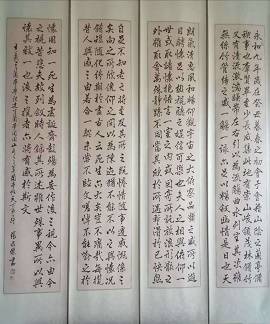 永和九年歲在癸丑暮春之初會于會稽山陰之蘭亭脩
禊事也群賢畢至少長咸集此地有崇山峻領茂林脩竹
又有清流激湍暎帶左右引以為流觴曲水列坐其次雖
無絲竹管絃之盛一觴一詠亦足以暢敘幽情是日也天
朗氣清惠風和暢仰觀宇宙之大俯察品類之盛所以遊
目騁懷足以極視聽之娛信可樂也夫人之相與俯仰一
世或取諸懷抱悟言一室之內或因寄所託放浪形骸之
外雖趣舍萬殊靜躁不同當其欣於所遇暫得於己快然
自足不知老之將至及其所之既惓情隨事遷感慨係之
矣向之所欣俛仰之間以為陳迹猶不能不以之興懷況
脩短隨化終期於盡古人云死生亦大矣豈不痛哉每攬
昔人興感之由若合一契未嘗不臨文嗟悼不能喻之於
懷固知一死生為虛誕齊彭殤為妄作後之視今亦由今
之視昔悲夫故列敘時人錄其所述雖世殊事異所以興
懷其致一也後之攬者亦將有感於斯文